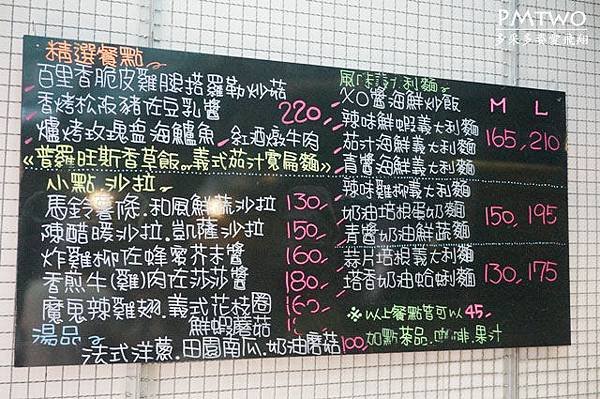 PMTWO
精選餐點
百里香脆皮雞腿搭羅勒炒菇
香烤松阪豬佐豆乳醬 220
爐烤玫瑰鹽海鱸魚 紅酒燉牛肉
《普羅旺斯香草飯or義式茄汁寬扁麵》
小點.沙拉
馬鈴薯條.和風鮮蔬沙拉 130
陳醋暖沙拉.凱薩沙拉 150
炸雞柳佐蜂蜜芥末醬 160
香煎牛(雞)肉在莎莎醬 180
魔鬼辣雞翅.義式花枝圈 160
鮮蝦蘑菇
湯品
法式洋蔥.田園南瓜.奶油蘑菇 100
義大利麵
M L
XO醬海鮮炒飯
辣味鮮蝦義大利麵
茄汁海鮮義大利麵 165, 210
青醬海鮮義大利麵
辣味雞柳義大利麵
奶油培根蛋奶麵 150, 195
青醬奶油鮮蔬麵
蒜片培根義大利麵
塔香奶油蛤蜊麵 130, 175
※以上餐點皆可以45
加點茶品.咖啡.果汁